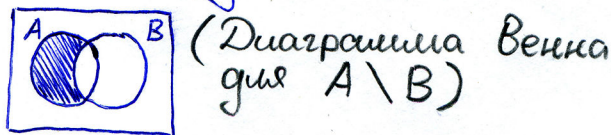 A B
(Диаграмма Венна
для A \ B)